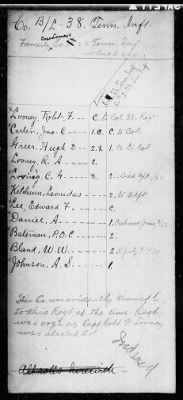 Co. B/C 38. Tenn. Inft.
Formerly Co
22 Tenn. Inf
Looney, Robt F. C. to Col 38. Regt
Carter, Jno. C. 1 C. to Col.
Greer, Hugh D 2. 1. to Lt. Col
Looney, R. A. 2.
Looney, C. A. 3. 2. Died
Ketchum, Leonidas 2.
Lee, Edward F. C.
Daniel, A. 1.
Bateman, P.O.C. 2.
Bland, W. W. 2.
Johnson, A. S. 1.
This Co. was evidently transfd.
to this Regt at the time Regt
was org as Capt Robt F. Looney
was elected Col
Indexed
All rolls herewith